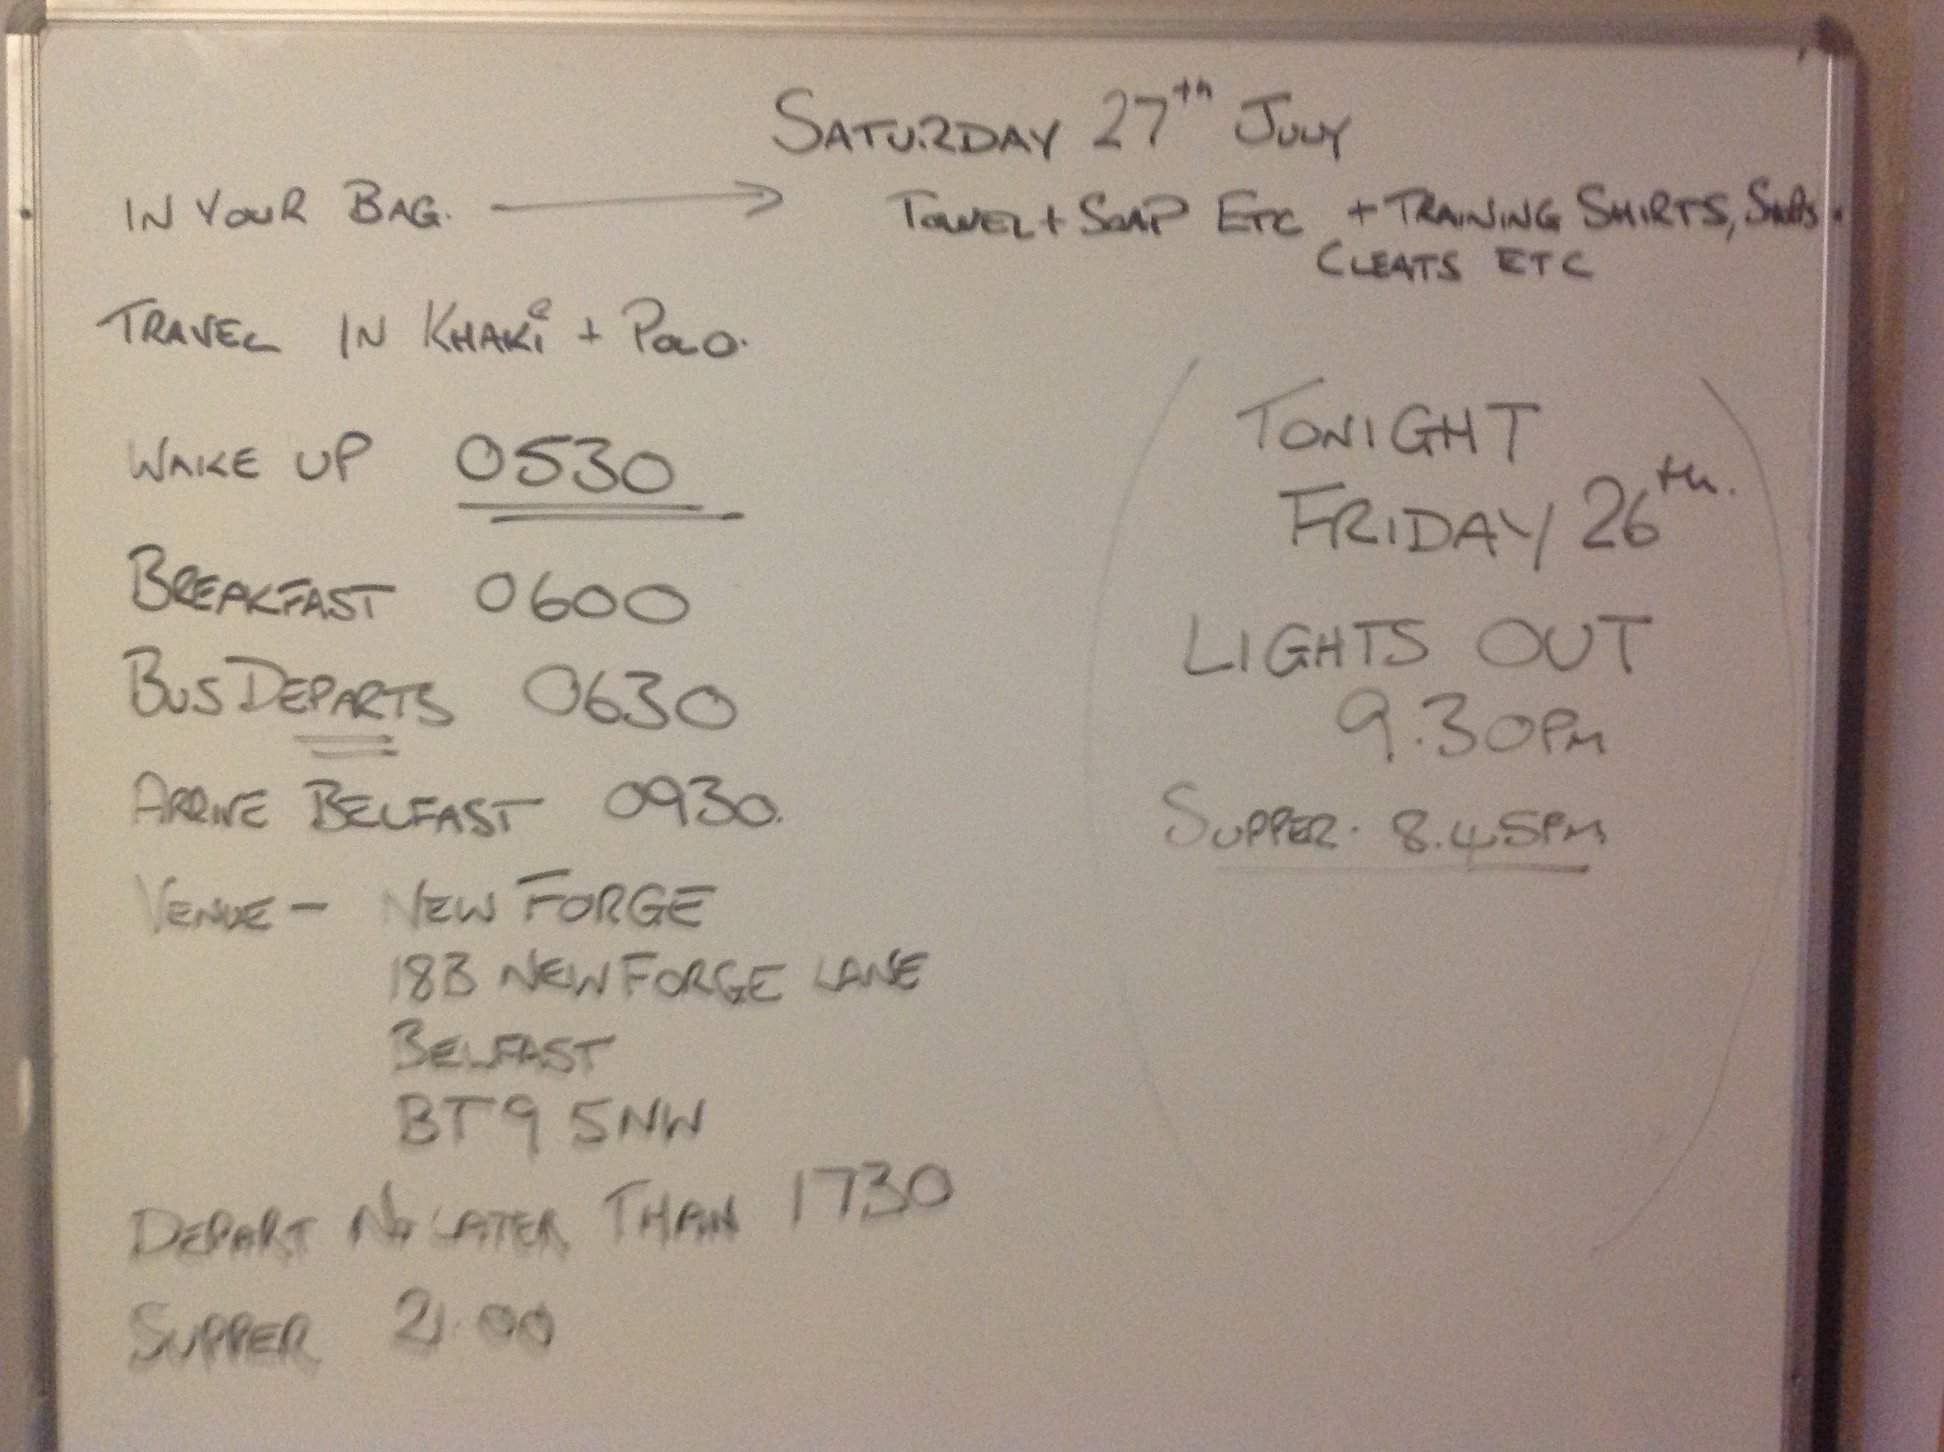 SATURDAY 27th JULY
IN YOUR BAG. → TOWEL + SOAP ETC + TRAINING SHIRTS,
CLEATS ETC
TRAVEL IN KHAKI + POLO.
WAKE UP 0530
BREAKFAST 0600
BUS DEPARTS 0630
ARRIVE BELFAST 0930.
VENUE - NEW FORGE
18B NEWFORGE LANE
BELFAST
BT9 5NW
DEPART NO LATER THAN 1730
SUPPER 21.00
TONIGHT
FRIDAY 26th.
LIGHTS OUT
9.30PM
SUPPER. 8.45PM